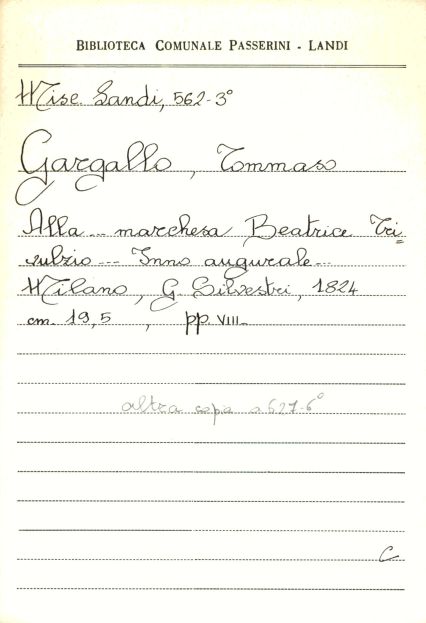 BIBLIOTECA COMUNALE PASSERINI - LANDI
Misc. Landi, 562-3°
Gargallo, Tommaso
Alla ... marchesa Beatrice Tri=
vulzio ... Inno augurale...
Milano, G. Silvestri, 1824
cm. 19,5 , pp. VIII.
altra copia a 627-6°
C